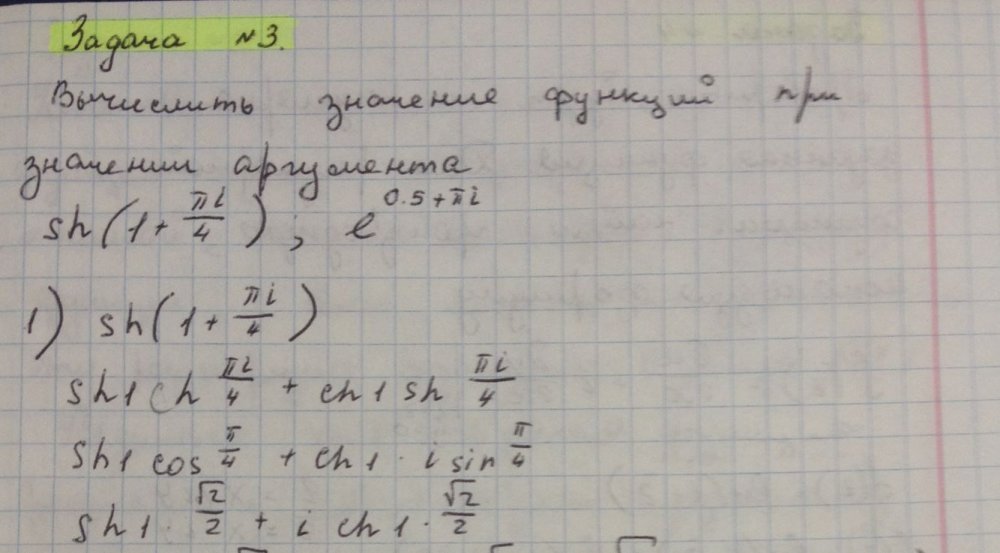 Задача №3.
Вычислить значение функций при
значении аргумента
sh(1+πi/4); e^(0.5+πi)
1) sh(1+πi/4)
sh1 ch πi/4 + ch1 sh πi/4
sh1 cos π/4 + ch1 · i sin π/4
sh1 · √2/2 + i ch1 · √2/2